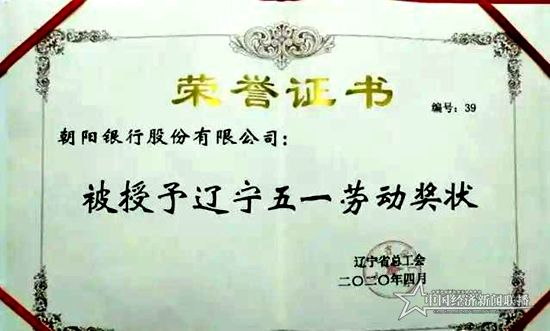 荣誉证书
编号:39
朝阳银行股份有限公司:
被授予辽宁五一劳动奖状
辽宁省总工会
二〇二〇年四月
中国经济新闻联播